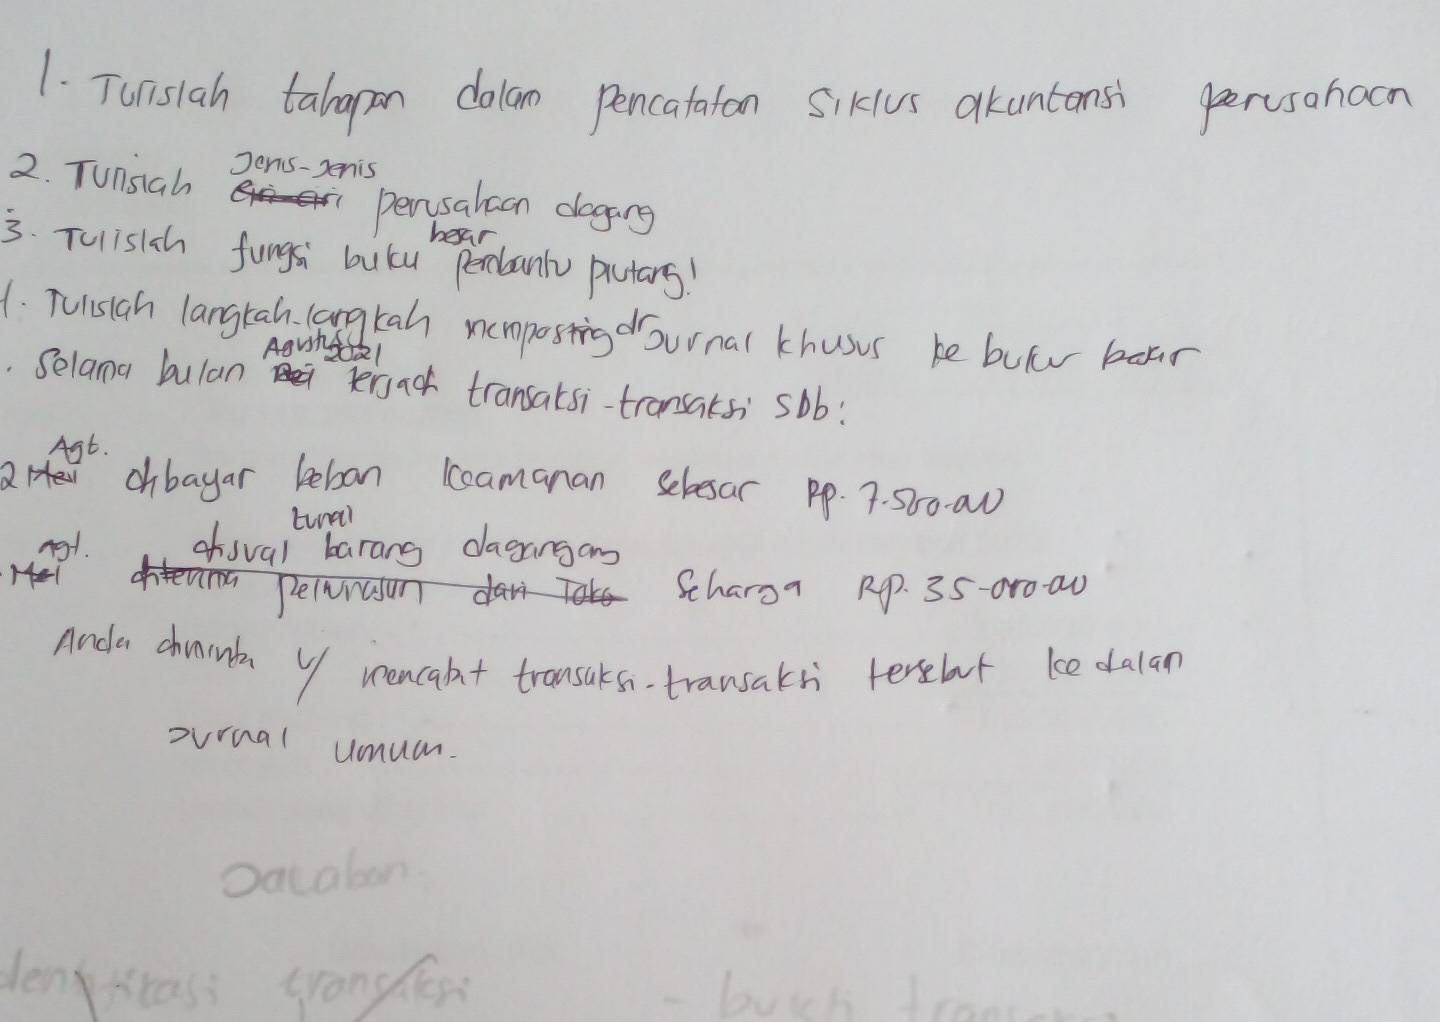 1. Tulislah tahapan dalam pencatatan siklus akuntansi perusahaan
2. Tulislah Jenis-Jenis perusahaan dagang
3. Tulislah fungsi buku besar pembantu piutang!
. Tulislah langkah-langkah memposting dr Jurnal khusus ke buku besar
. Selama bulan Agustus 2021 terjadi transaksi-transaksi sbb:
2 Agt. dibayar beban keamanan sebesar Rp. 7.500.00
Agt. dijual tunai barang dagangan seharga Rp. 35.000.00
Anda diminta u/ mencatat transaksi-transaksi tersebut ke dalam
Jurnal umum.
Jawaban
transaksi - bukti